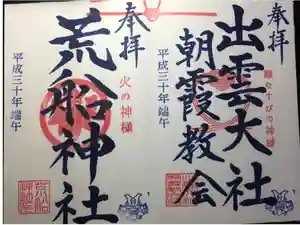 奉拝
縁むすびの神様
出雲大社
朝霞教会
平成三十年端午
奉拝
火の神様
荒船神社
平成三十年端午